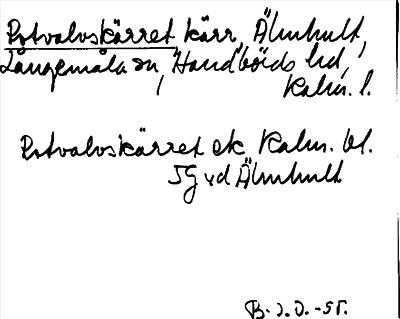 Rotvalvskärret kärr, Älmhult,
Långemåla sn, Handbörds hd,
Kalm. l.
Rotvalvskärret ek Kalm. bl.
5G vd Älmhult
B. J. J. -55.